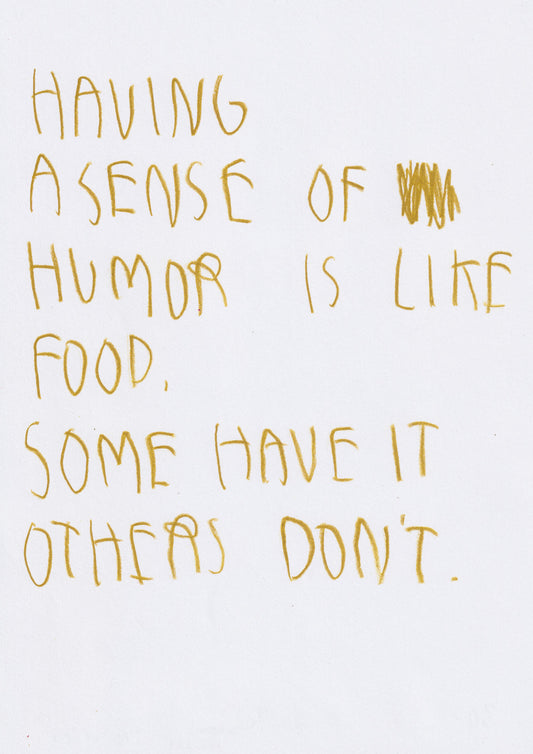 HAVING
A SENSE OF
HUMOR IS LIKE
FOOD.
SOME HAVE IT
OTHERS DON'T.